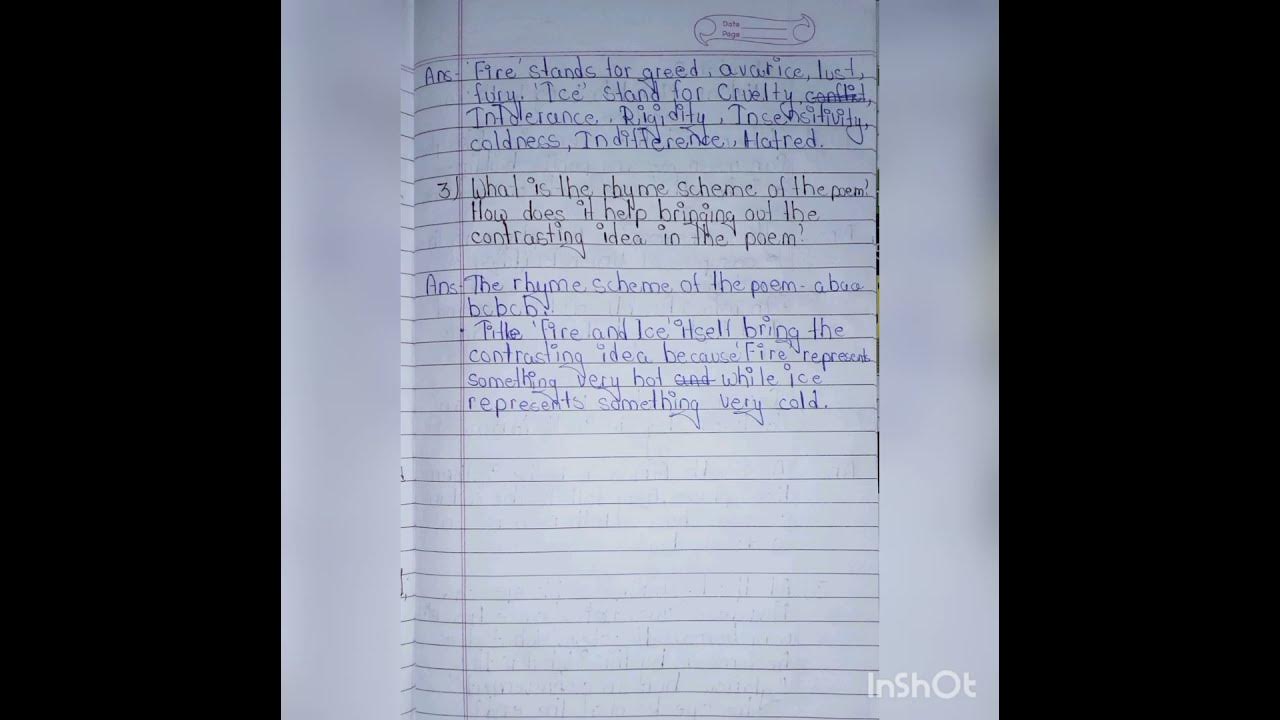 Date
Page
Ans- 'Fire' stands for greed, avarice, lust,
fury. 'Ice' stand for Cruelty, conflict,
Intolerance, Rigidity, Insensitivity,
coldness, Indifference, Hatred.
3) What is the rhyme scheme of the poem?
How does it help bringing out the
contrasting idea in the poem?
Ans- The rhyme scheme of the poem- abaa
bcbcb.
• Title 'Fire and Ice' itself bring the
contrasting idea because 'Fire' represents
something very hot and while ice
represents something very cold.
InShOt